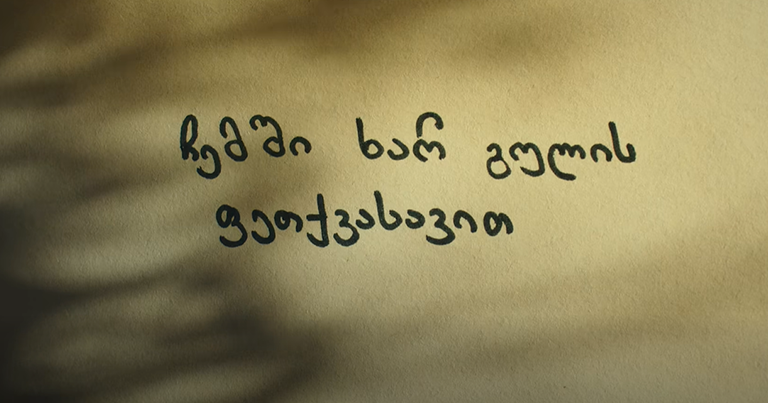 ჩემში ხარ გულის
ფეთქვასავით